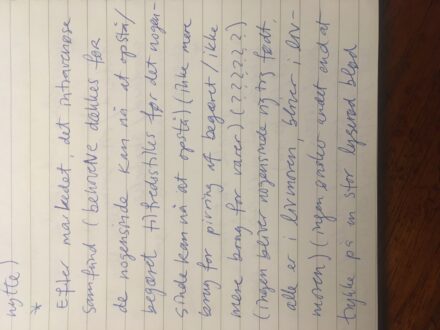 nytte)
*
Efter markedet, det intravenøse
samfund (behovene dækkes før
de nogensinde kan nå at opstå/
begæret tilfredsstilles før det nogen-
sinde kan nå at opstå) (ikke mere
brug for pirring af begæret/ikke
mere brug for varer) (??????)
(ingen bliver nogensinde rigtig født,
alle er i livmoren, bliver i liv-
moren) (ingen ønsker andet end at
trykke på en stor lyserød blød